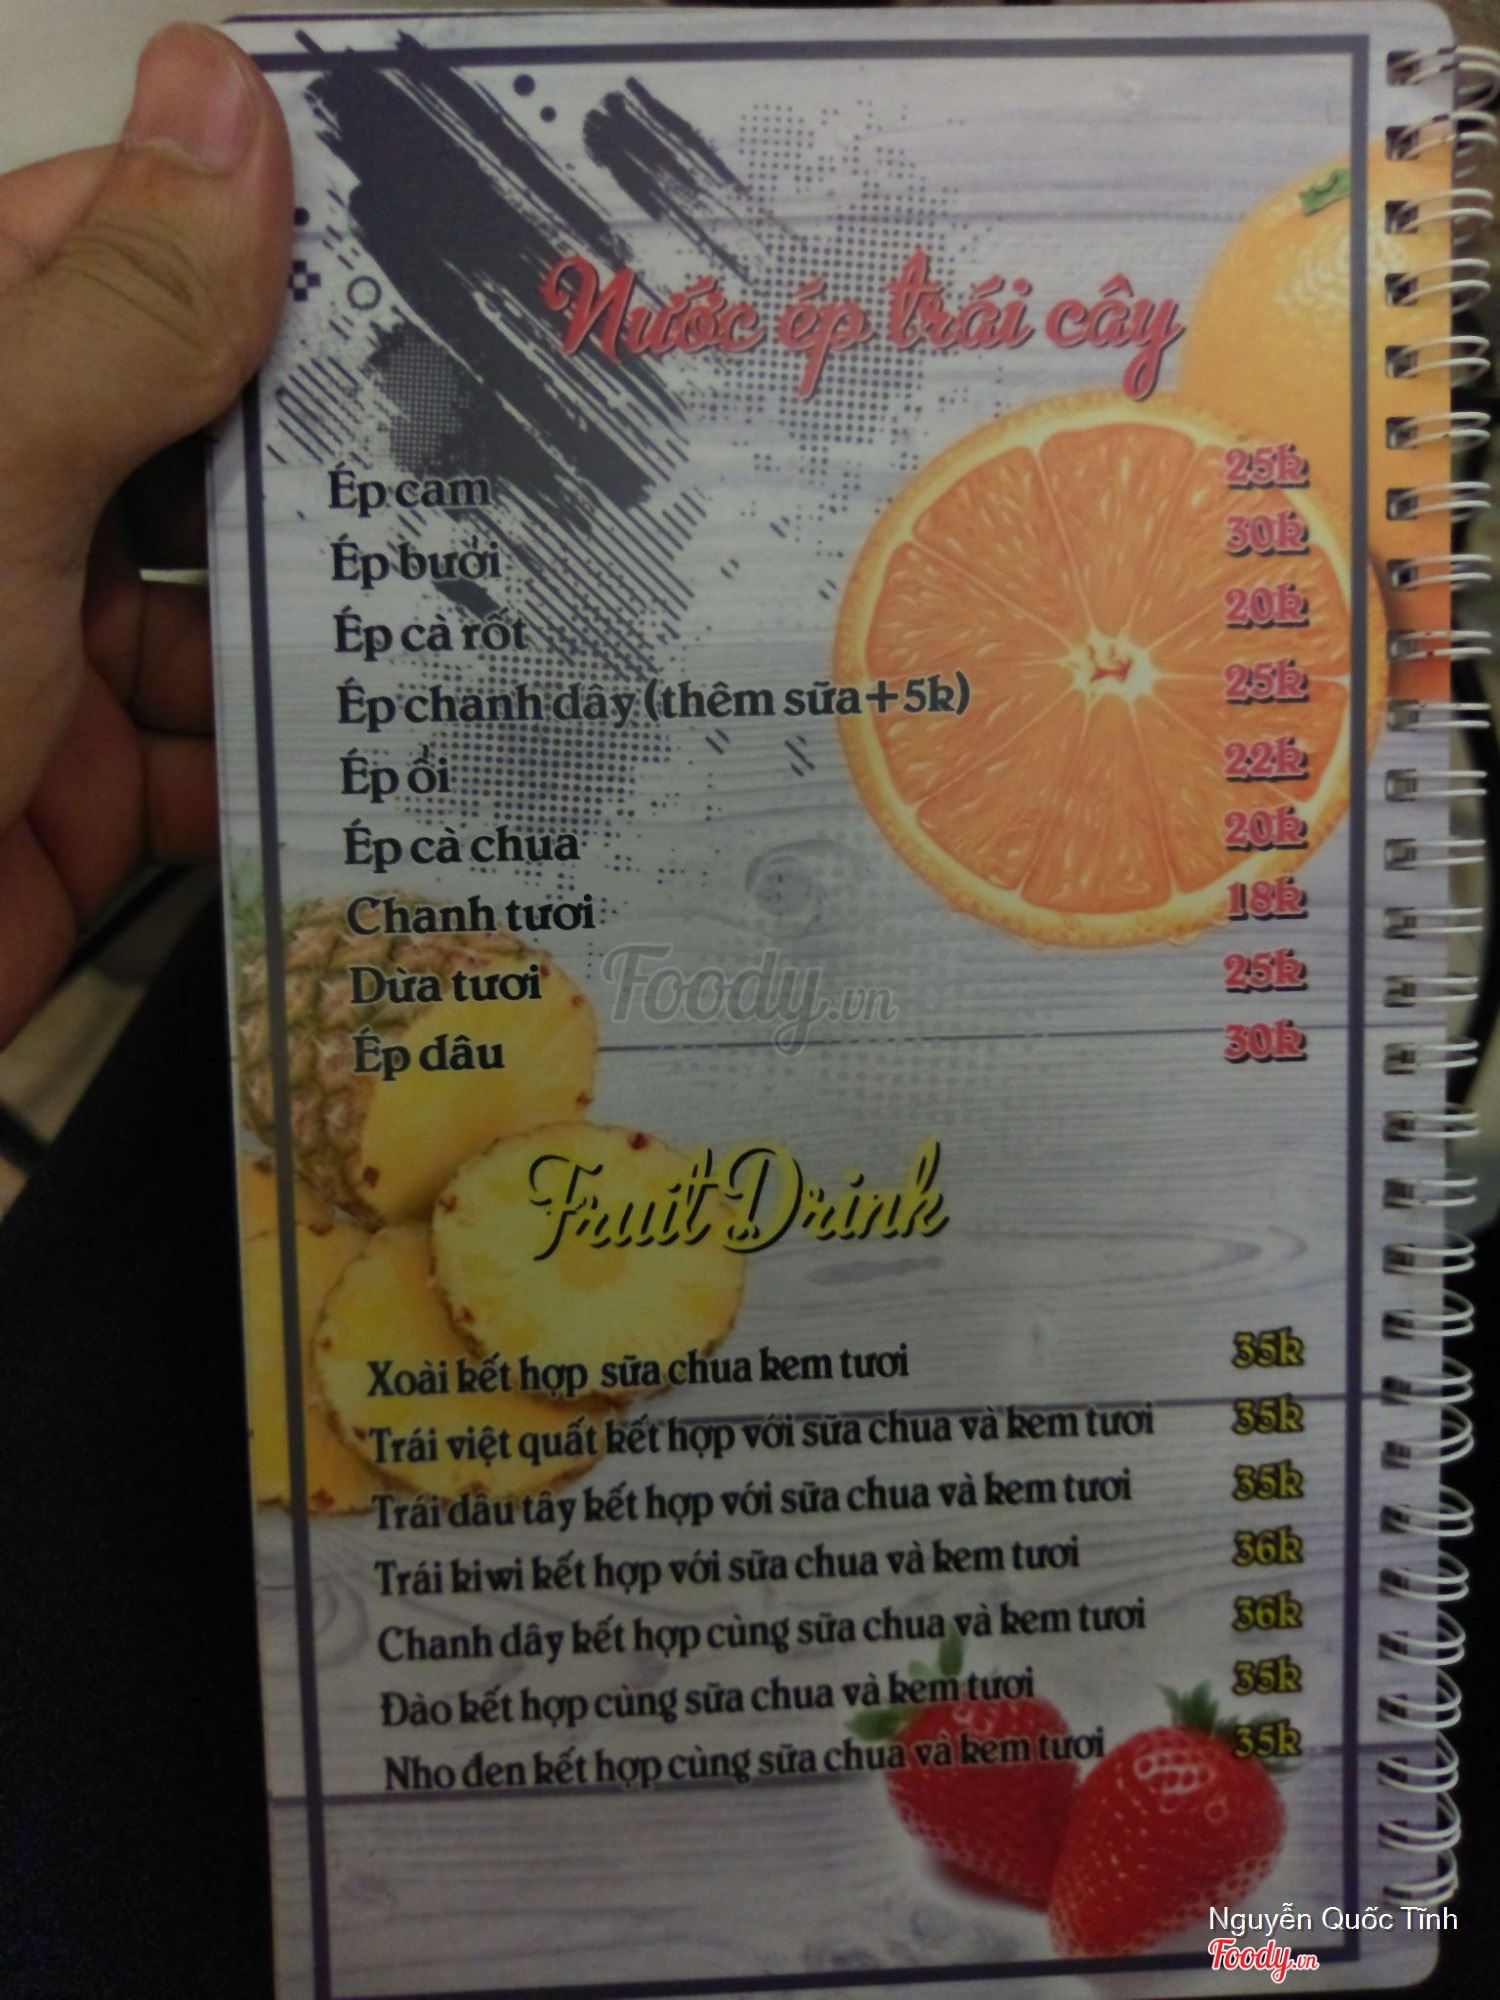 Nước ép trái cây
Ép cam 25k
Ép bưởi 30k
Ép cà rốt 20k
Ép chanh dây (thêm sữa+5k) 25k
Ép ổi 22k
Ép cà chua 20k
Chanh tươi 18k
Dừa tươi 25k
Ép dâu 30k
Foody.vn
Fruit Drink
Xoài kết hợp sữa chua kem tươi 35k
Trái việt quất kết hợp với sữa chua và kem tươi 35k
Trái dâu tây kết hợp với sữa chua và kem tươi 35k
Trái kiwi kết hợp với sữa chua và kem tươi 36k
Chanh dây kết hợp cùng sữa chua và kem tươi 36k
Đào kết hợp cùng sữa chua và kem tươi 35k
Nho đen kết hợp cùng sữa chua và kem tươi 35k
Nguyễn Quốc Tĩnh
Foody.vn